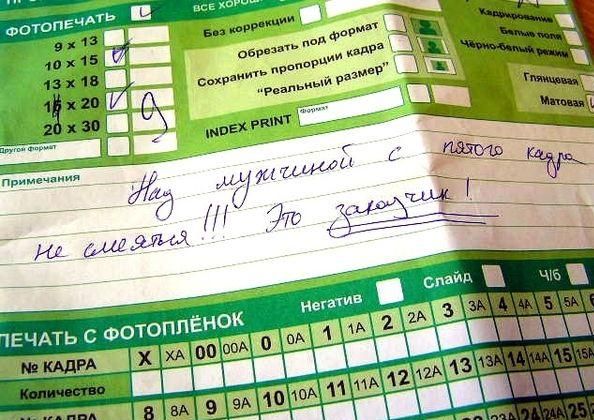 ФОТОПЕЧАТЬ
9 x 13
10 x 15
13 x 18
15 x 20
20 x 30
9
Другой формат
ВСЕ
Без коррекции
Обрезать под формат
Сохранить пропорции кадра
"Реальный размер"
INDEX PRINT
Формат
Кадрирование
Белые поля
Чёрно-белый режим
Глянцевая
Матовая
Примечания
Над мужчиной с пятого кадра
не смеяться!!! Это заказчик!
ПЕЧАТЬ С ФОТОПЛЁНОК
Негатив
Слайд
Ч/б
№ КАДРА X XA 00 00A 0 0A 1 1A 2 2A 3 3A 4 4A 5 5A 6
Количество
№ КАДРА 8 8A 9 9A 10 10A 11 11A 12 12A 13 13A 14 14A 15 15A
Количество